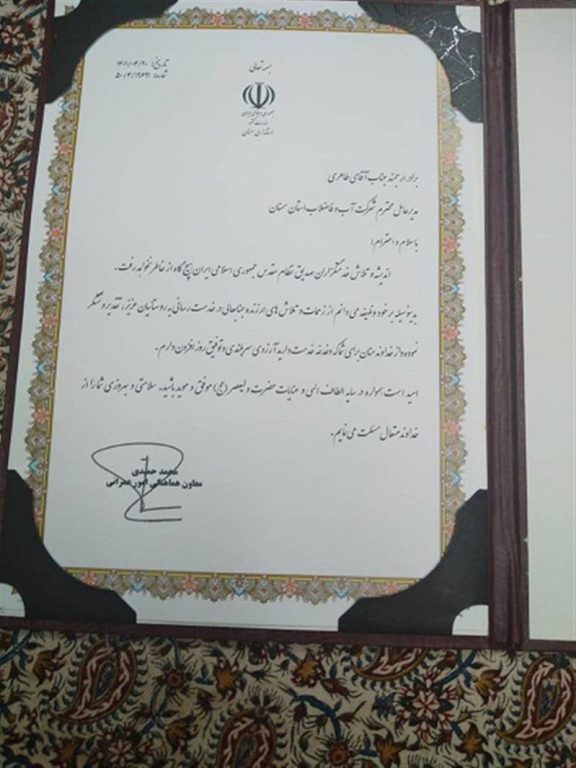 بسمه تعالی
تاریخ: ۱۴۰۱/۰۴/۲۰
شماره: ۵۰/۴/۱۲۶۹۱
جمهوری اسلامی ایران
وزارت کشور
استانداری سمنان
برادر ارجمند جناب آقای طاهری
مدیرعامل محترم شرکت آب و فاضلاب استان سمنان
با سلام و احترام؛
اندیشه و تلاش خدمتگزاران صدیق نظام مقدس جمهوری اسلامی ایران هیچ گاه از خاطر نخواهد رفت.
بدینوسیله بر خود وظیفه می دانم از زحمات و تلاش های ارزنده جنابعالی در خدمت رسانی به روستائیان عزیز، تقدیر و تشکر
نموده و از خداوند منان برای شما که دغدغه خدمت دارید آرزوی سربلندی و توفیق روز افزون دارم.
امید است همواره در سایه الطاف الهی و عنایات حضرت ولیعصر (عج) موفق و موید باشید. سلامتی و بهروزی شما را از
خداوند متعال مسئلت می نمایم.
محمد حمیدی
معاون هماهنگی امور عمرانی